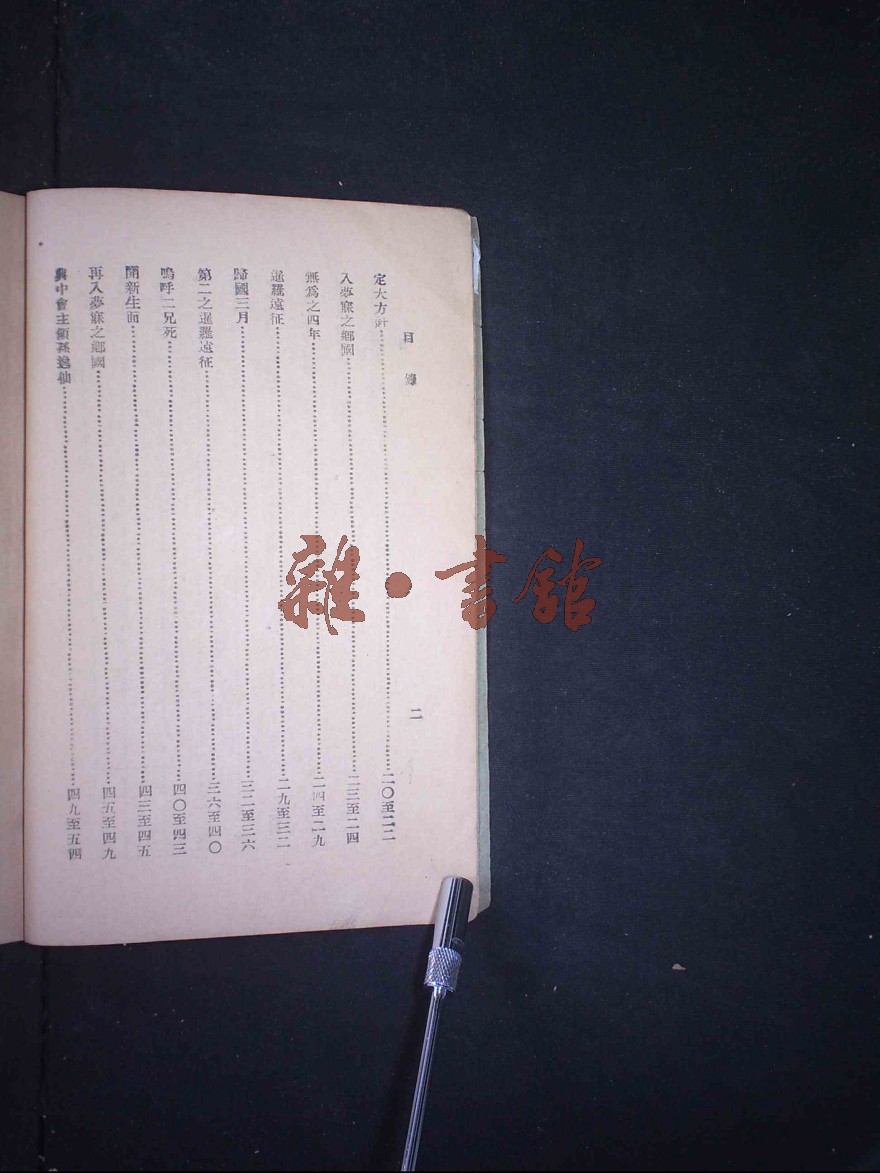 目錄
二
定大方針⋯⋯二〇至二二
入夢寐之鄉國⋯⋯二三至二四
無爲之四年⋯⋯二四至二九
暹羅遠征⋯⋯二九至三二
歸國三月⋯⋯三二至三六
第二之暹羅遠征⋯⋯三六至四〇
嗚呼二兄死⋯⋯四〇至四三
開新生面⋯⋯四三至四五
再入夢寐之鄉國⋯⋯四五至四九
興中會主領孫逸仙⋯⋯四九至五四
雜•書館